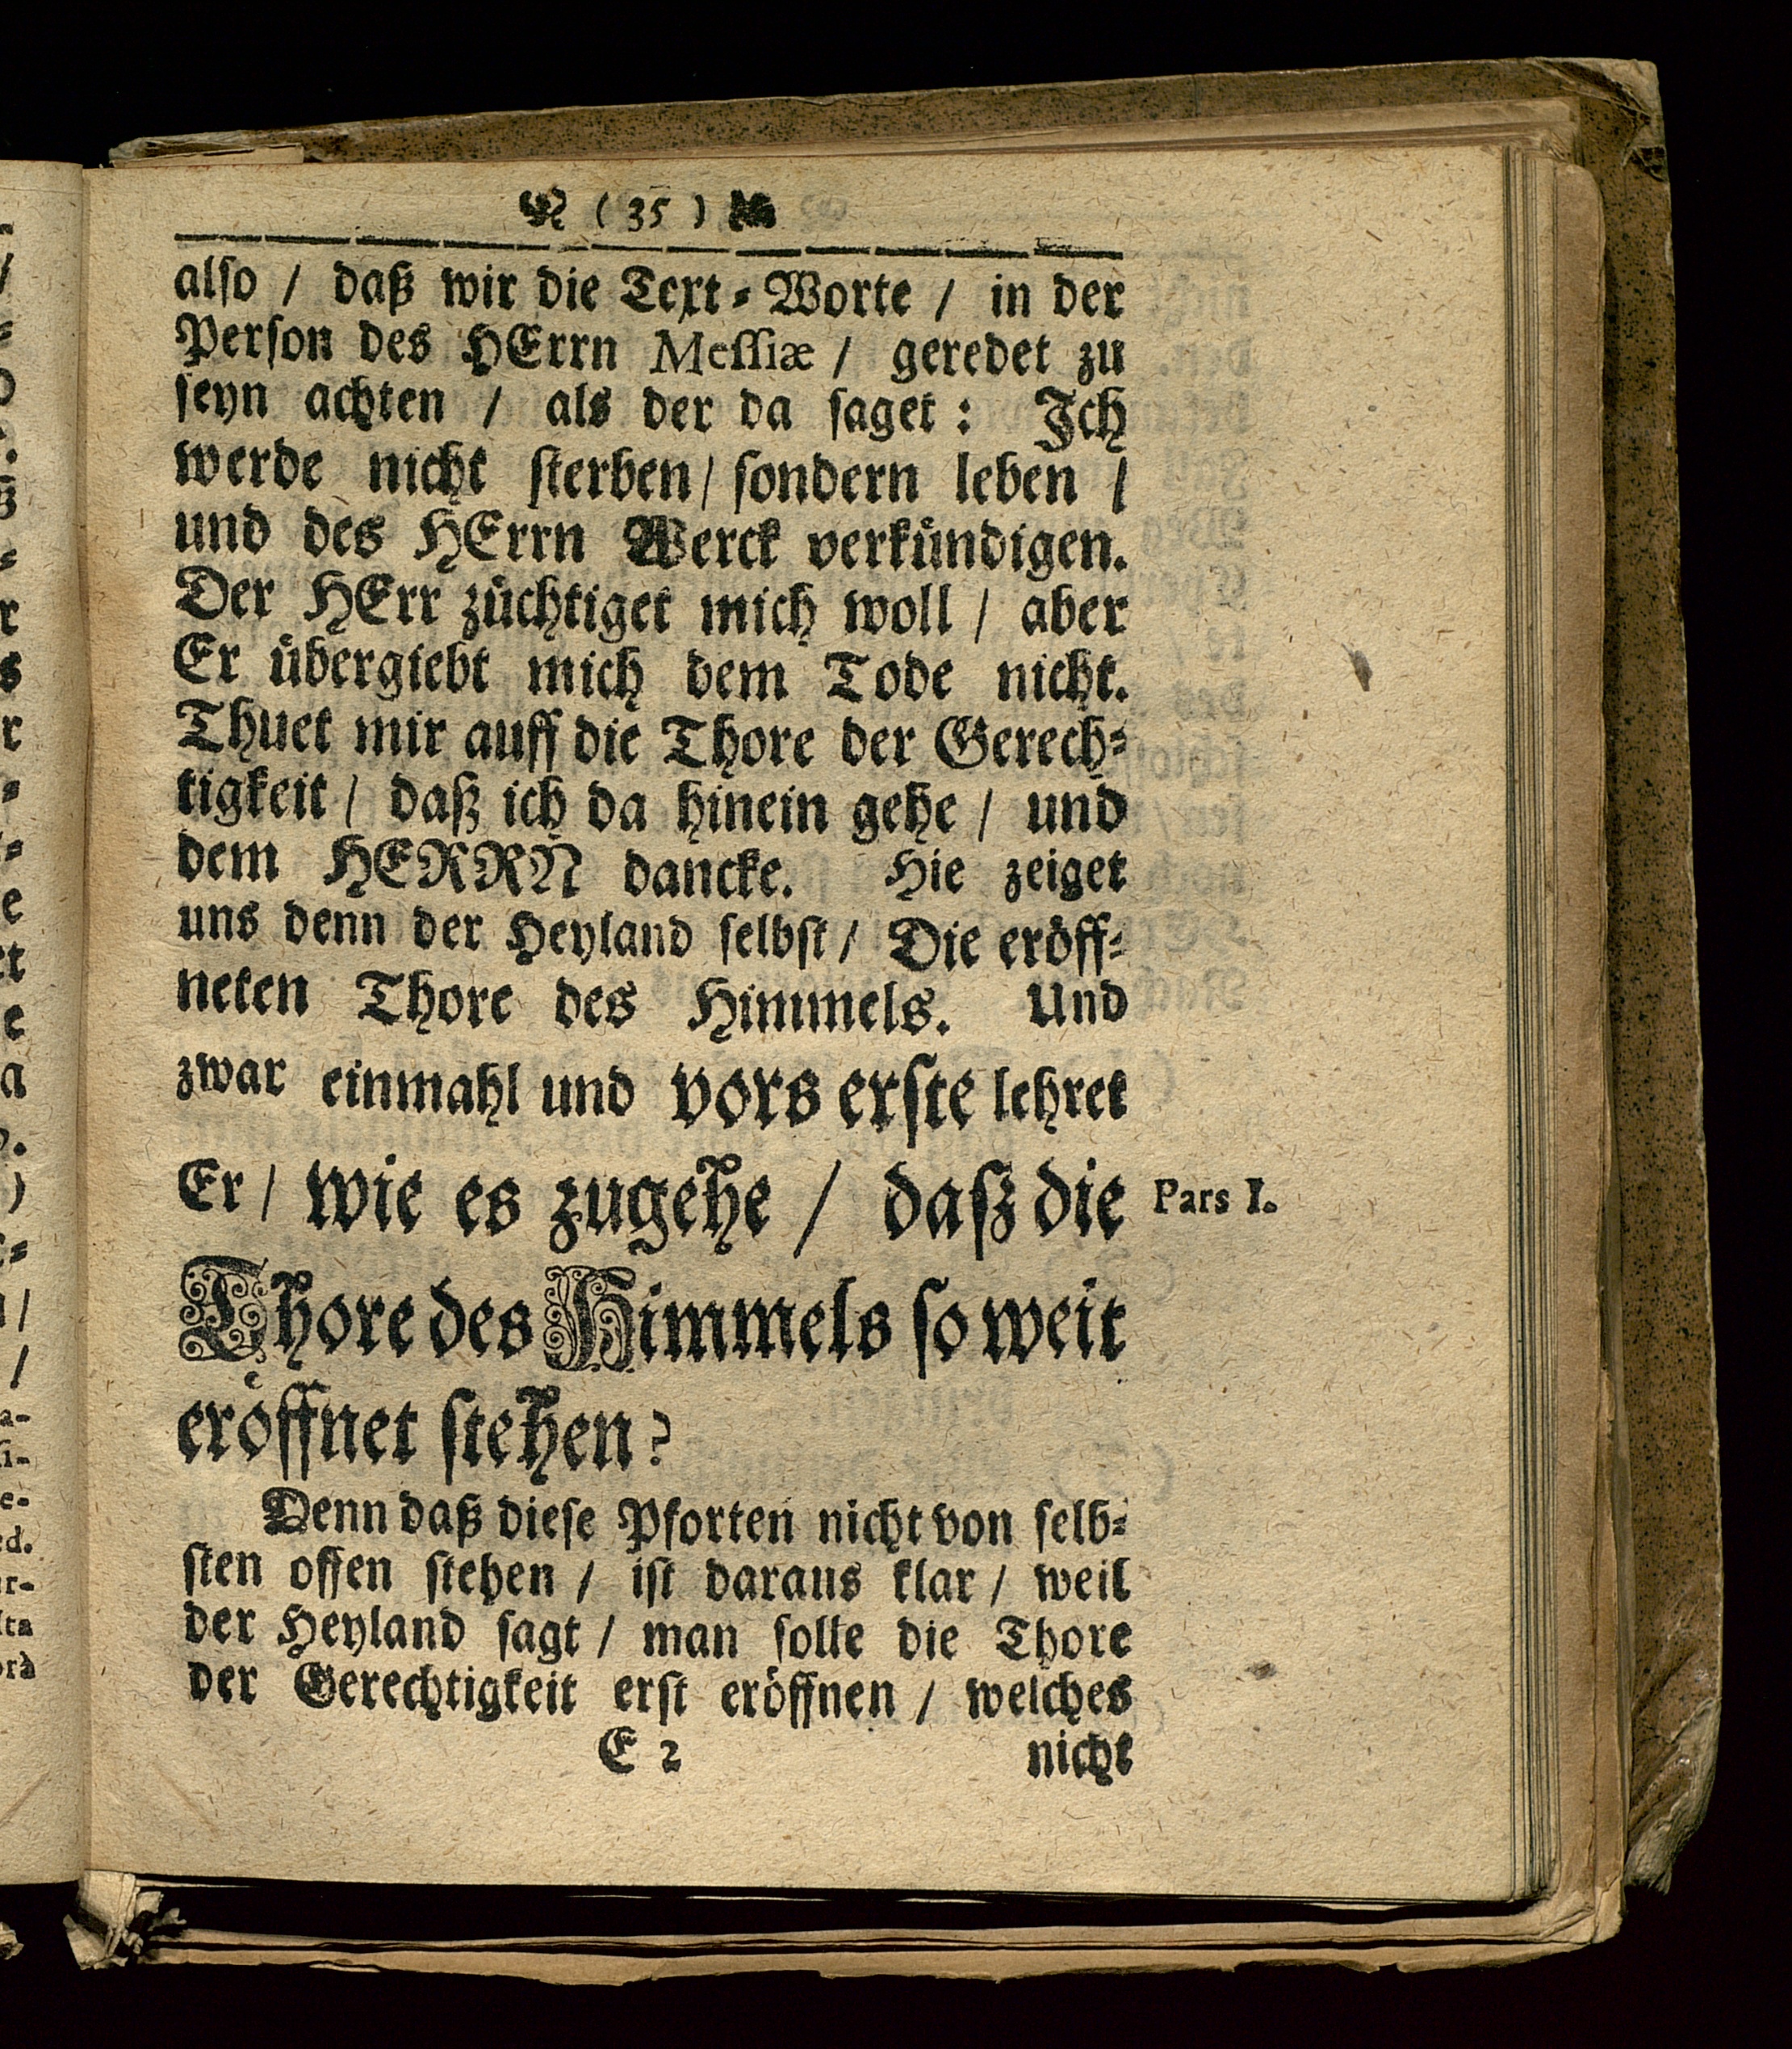 ( 35 )
also / daß wir die Text-Worte / in der
Person des HErrn Messiæ / geredet zu
seyn achten / als der da saget: Ich
werde nicht sterben / sondern leben /
und des HErrn Werck verkündigen.
Der HErr züchtiget mich woll / aber
Er übergiebt mich dem Tode nicht.
Thuet mir auff die Thore der Gerech-
tigkeit / daß ich da hinein gehe / und
dem HERRN dancke. Hie zeiget
uns denn der Heyland selbst / Die eröff-
neten Thore des Himmels. Und
zwar einmahl und vors erste lehret
Er / wie es zugehe / daß die
Pars I.
Thore des Himmels so weit
eröffnet stehen?
Denn daß diese Pforten nicht von selb-
sten offen stehen / ist daraus klar / weil
der Heyland sagt / man solte die Thore
der Gerechtigkeit erst eröffnen / welches
E 2
nicht